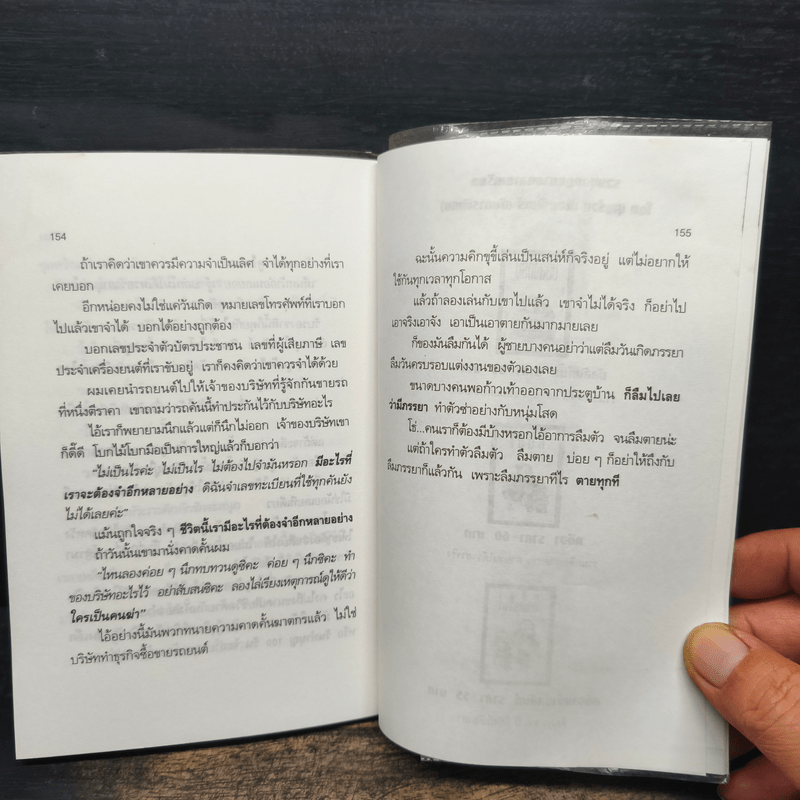 154
ถ้าเราคิดว่าเขาควรมีความจำเป็นเลิศ จำได้ทุกอย่างที่เรา
เคยบอก
อีกหน่อยคงไม่ใช่แค่วันเกิด หมายเลขโทรศัพท์ที่เราบอก
ไปแล้วเขาจำได้ บอกได้อย่างถูกต้อง
บอกเลขประจำตัวบัตรประชาชน เลขที่ผู้เสียภาษี เลข
ประจำเครื่องยนต์ที่เราขับอยู่ เราก็คงคิดว่าเขาควรจำได้ด้วย
ผมเคยนำรถยนต์ไปให้เจ้าของบริษัทที่รู้จักกันขายรถ
ที่หนึ่งตีราคา เขาถามว่ารถคันนี้ทำประกันไว้กับบริษัทอะไร
ไอ้เราก็พยายามนึกแล้วแต่ก็นึกไม่ออก เจ้าของบริษัทเขา
ก็ดี๊ดี โบกไม้โบกมือเป็นการใหญ่แล้วก็บอกว่า
"ไม่เป็นไรค่ะ ไม่เป็นไร ไม่ต้องไปจำมันหรอก มีอะไรที่
เราจะต้องจำอีกหลายอย่าง ดิฉันจำเลขทะเบียนที่ใช้ทุกคันยัง
ไม่ได้เลยค่ะ"
แม้นถูกใจจริง ๆ ชีวิตนี้เรามีอะไรที่ต้องจำอีกหลายอย่าง
ถ้าวันนั้นเขามานั่งคาดคั้นผม
"ไหนลองค่อย ๆ นึกทบทวนดูซิคะ ค่อย ๆ นึกซิคะ ทำ
ของบริษัทอะไรไว้ อย่าสับสนซิคะ ลองไล่เรียงเหตุการณ์ดูให้ดีว่า
ใครเป็นคนฆ่า"
ไอ้อย่างนี้มันพวกทนายความคาดคั้นฆาตกรแล้ว ไม่ใช่
บริษัททำธุรกิจซื้อขายรถยนต์
155
ฉะนั้นความคิกขุขี้เล่นเป็นเสน่ห์ก็จริงอยู่ แต่ไม่อยากให้
ใช้กันทุกเวลาทุกโอกาส
แล้วถ้าลองเล่นกับเขาไปแล้ว เขาจำไม่ได้จริง ก็อย่าไป
เอาจริงเอาจัง เอาเป็นเอาตายกันมากมายเลย
ก็ของมันลืมกันได้ ผู้ชายบางคนอย่าว่าแต่ลืมวันเกิดภรรยา
ลืมวันครบรอบแต่งงานของตัวเองเลย
ขนาดบางคนพอก้าวเท้าออกจากประตูบ้าน ก็ลืมไปเลย
ว่ามีภรรยา ทำตัวซ่าอย่างกับหนุ่มโสด
โธ่...คนเราก็ต้องมีบ้างหรอกไอ้อาการลืมตัว จนลืมตายน่ะ
แต่ถ้าใครทำตัวลืมตัว ลืมตาย บ่อย ๆ ก็อย่าให้ถึงกับ
ลืมภรรยาก็แล้วกัน เพราะลืมภรรยาทีไร ตายทุกที